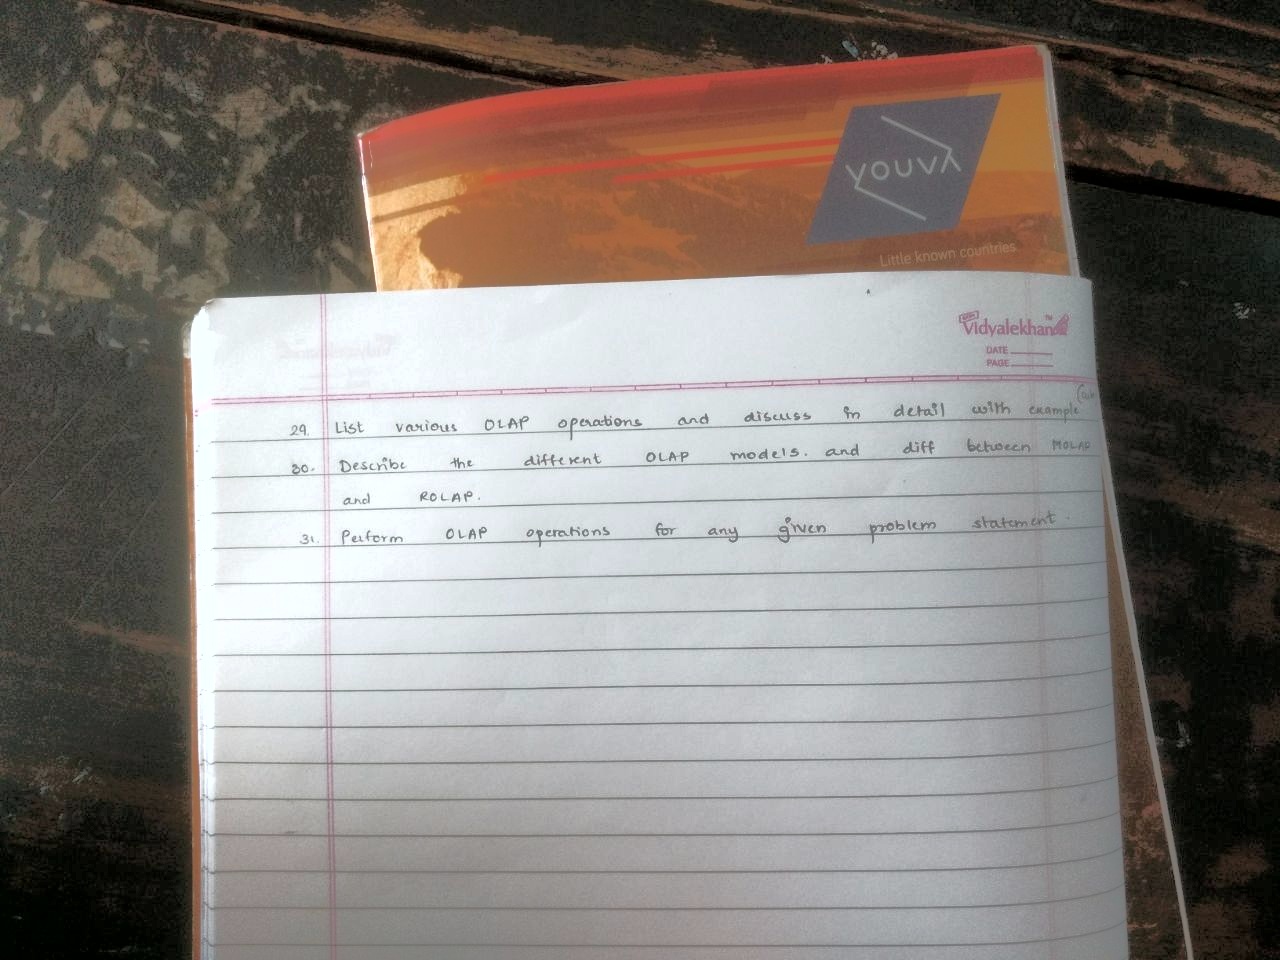 YOUVA
Little known countries
Vidyalekhan
DATE
PAGE
29. List various OLAP operations and discuss in detail with example
30. Describe the different OLAP models. and diff between MOLAP
and ROLAP.
31. Perform OLAP operations for any given problem statement.